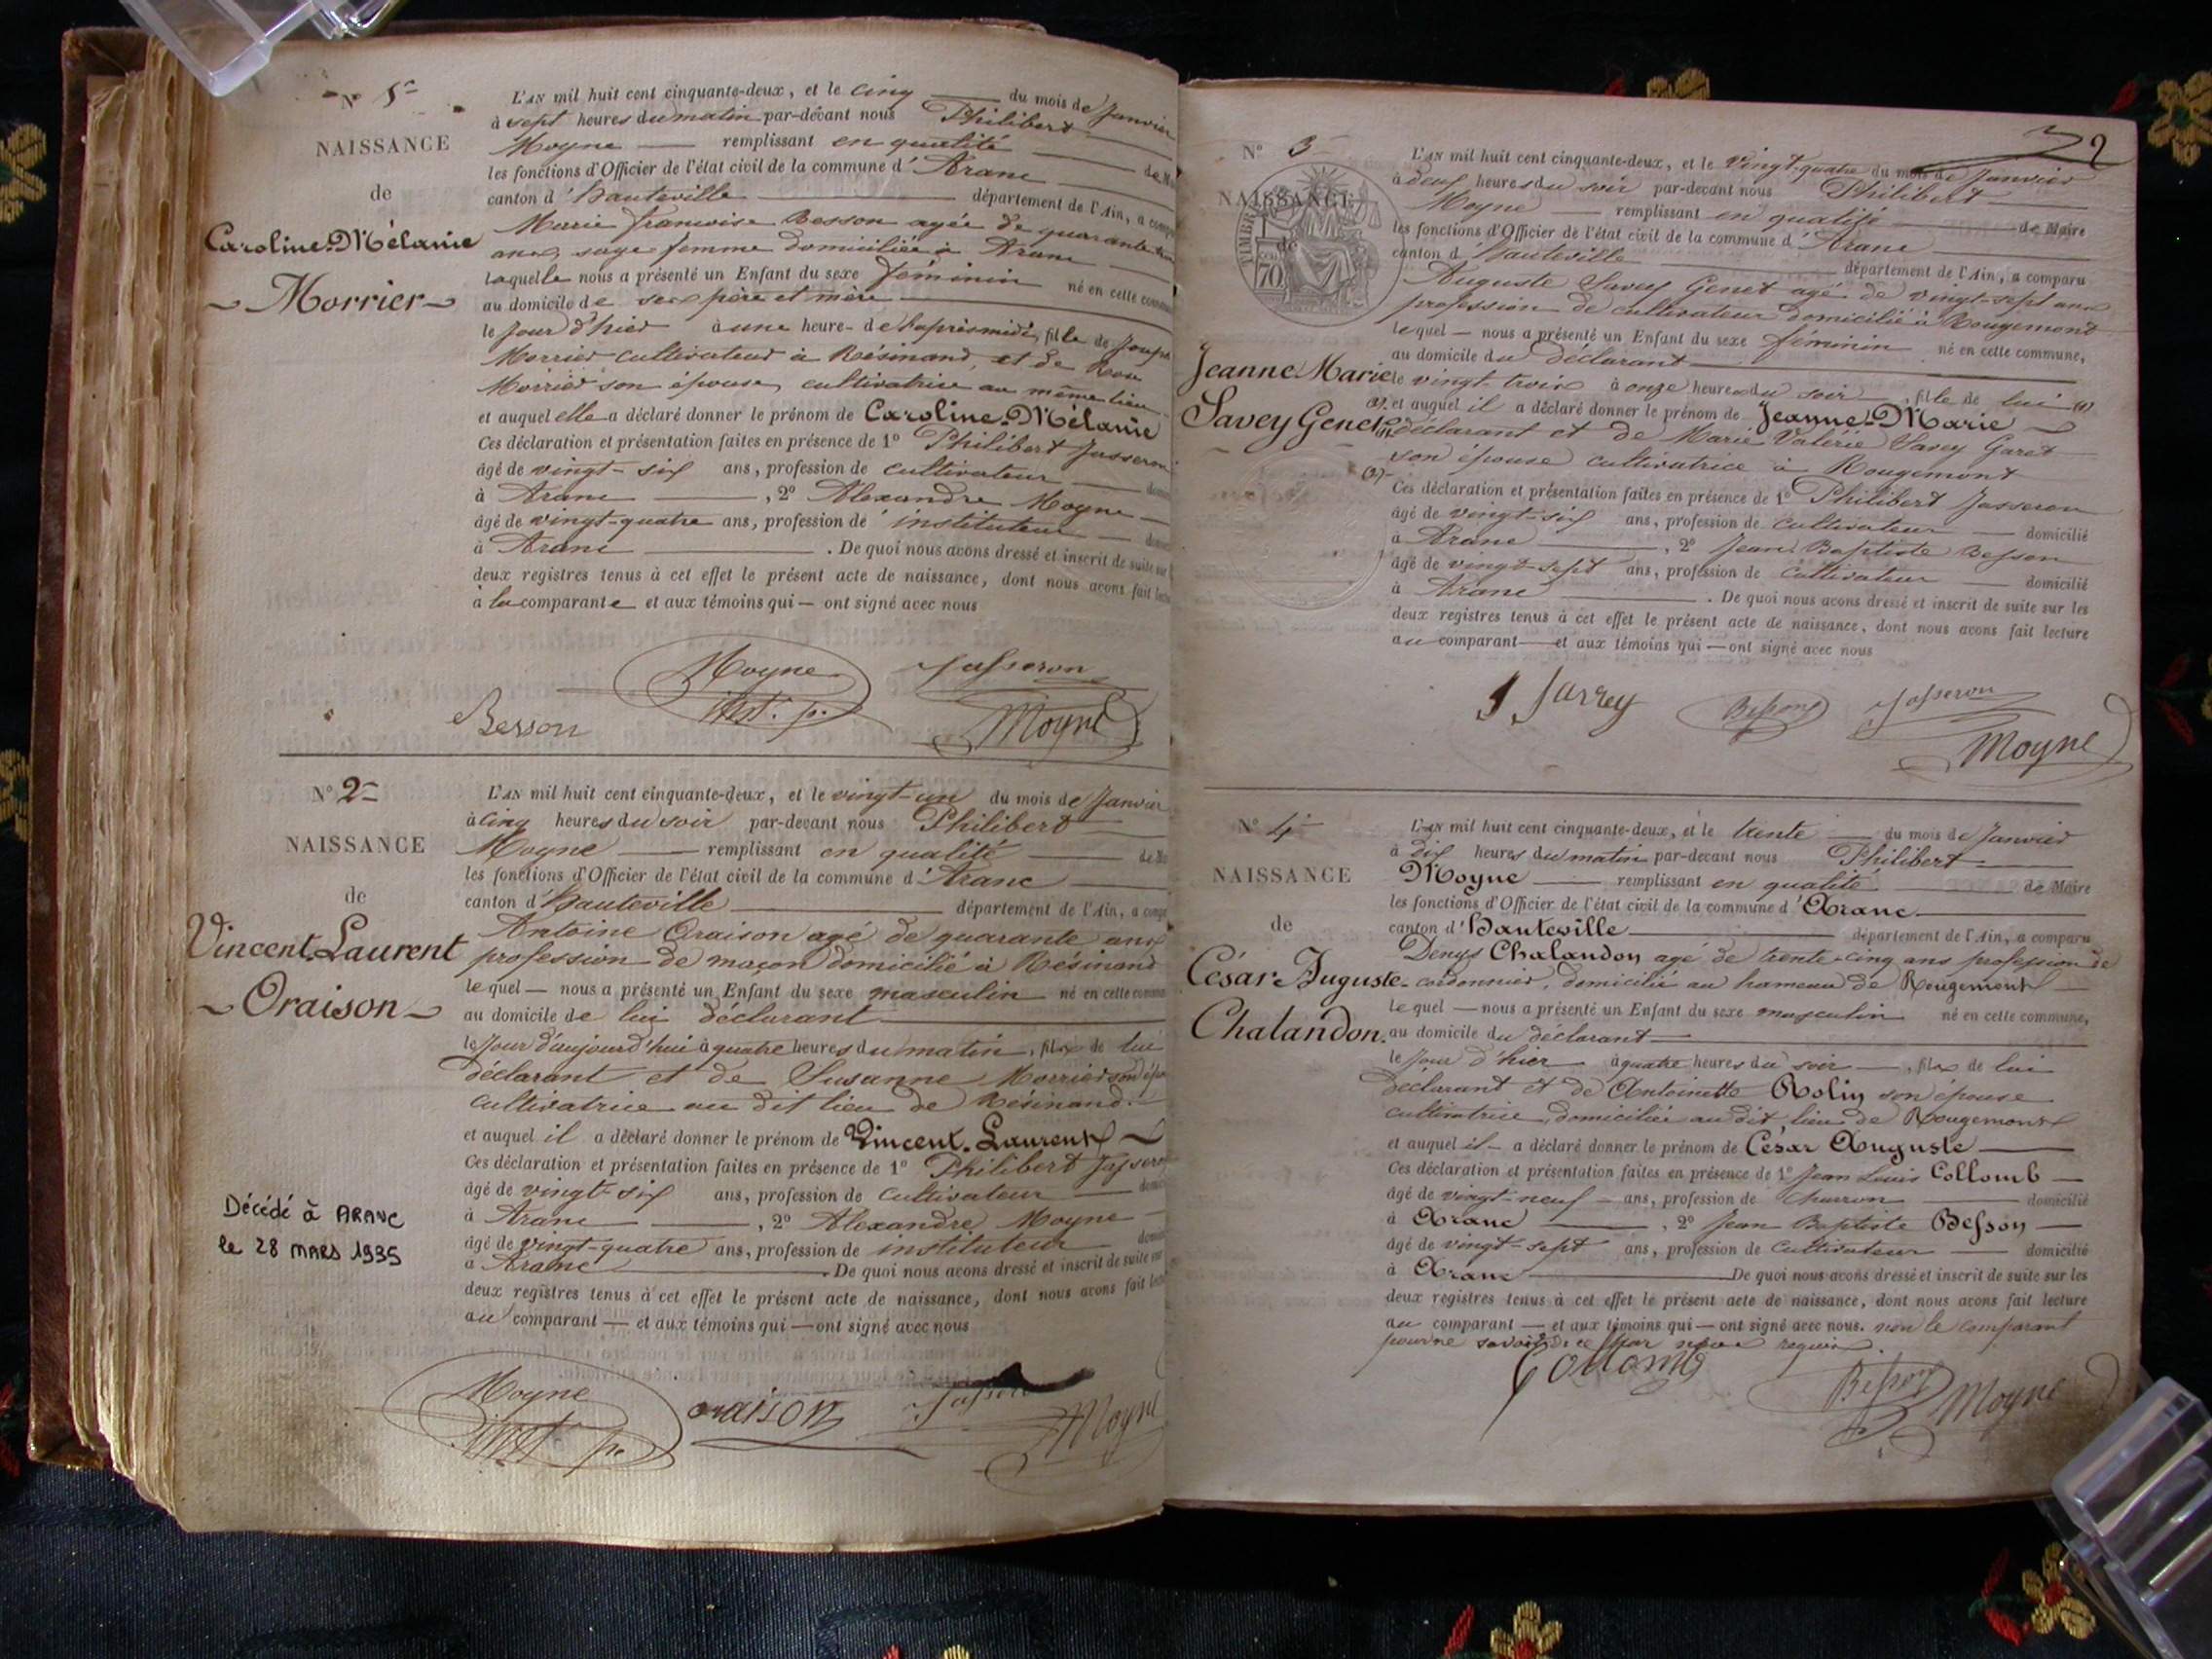 N° 1er
NAISSANCE
de
Caroline-Mélanie
Morrier
L'AN mil huit cent cinquante-deux, et le cinq du mois de Janvier
à sept heures du matin par-devant nous Philibert
Moyne remplissant en qualité de
les fonctions d'Officier de l'état civil de la commune d'Aranc
canton d'Hauteville département de l'Ain, a
Marie françoise Besson agée de quarante
ans, sage femme domiciliée à Aranc
laquelle nous a présenté un Enfant du sexe féminin né en cette
au domicile de ses père et mère
le Jour d'hier à une heure de l'après midi, fille de Joseph
Morrier cultivateur à Résinand, et de Rose
Morrier son épouse, cultivatrice au même lieu
et auquel elle a déclaré donner le prénom de Caroline-Mélanie
Ces déclaration et présentation faites en présence de 1° Philibert Jasseron
âgé de vingt-six ans, profession de cultivateur
à Aranc, 2° Alexandre Moyne
âgé de vingt-quatre ans, profession de instituteur
à Aranc. De quoi nous avons dressé et inscrit de suite sur
deux registres tenus à cet effet le présent acte de naissance, dont nous avons fait
à la comparante et aux témoins qui — ont signé avec nous
Moyne
Jasseron
Besson
Moyne
N° 2
NAISSANCE
de
Vincent-Laurent
Oraison
Décédé à ARANC
le 28 MARS 1935
L'AN mil huit cent cinquante-deux, et le vingt-un du mois de Janvier
à cinq heures du soir par-devant nous Philibert
Moyne remplissant en qualité de
les fonctions d'Officier de l'état civil de la commune d'Aranc
canton d'Hauteville département de l'Ain, a
Antoine Oraison agé de quarante ans
profession de maçon domicilié à Résinand
lequel — nous a présenté un Enfant du sexe masculin né en cette
au domicile de lui déclarant
le Jour d'aujourd'hui à quatre heures du matin, fils de lui
déclarant et de Susanne Morrier son
cultivatrice au dit lieu de Résinand.
et auquel il a déclaré donner le prénom de Vincent-Laurent
Ces déclaration et présentation faites en présence de 1° Philibert Jasseron
âgé de vingt-six ans, profession de cultivateur
à Aranc, 2° Alexandre Moyne
âgé de vingt-quatre ans, profession de instituteur
à Aranc. De quoi nous avons dressé et inscrit de suite sur
deux registres tenus à cet effet le présent acte de naissance, dont nous avons fait
au comparant — et aux témoins qui — ont signé avec nous
Moyne
oraison
Moyne
2
N° 3
NAISSANCE
de
TIMBRE
70
Jeanne-Marie
Savey Genet
L'AN mil huit cent cinquante-deux, et le vingt-quatre du mois de Janvier
à deux heures du soir par-devant nous Philibert
Moyne remplissant en qualité de Maire
les fonctions d'Officier de l'état civil de la commune d'Aranc
canton d'Hauteville département de l'Ain, a comparu
Auguste Savey Genet agé de vingt-sept ans
profession de cultivateur domicilié à Rougemont
lequel — nous a présenté un Enfant du sexe féminin né en cette commune,
au domicile du déclarant
le vingt-trois à onze heures du soir, fille de lui (1)
et auquel il a déclaré donner le prénom de Jeanne-Marie
déclarant et de Marie Valérie Savey Garet
son épouse cultivatrice à Rougemont
Ces déclaration et présentation faites en présence de 1° Philibert Jasseron
âgé de vingt-six ans, profession de cultivateur domicilié
à Aranc, 2° Jean Baptiste Besson
âgé de vingt-sept ans, profession de cultivateur domicilié
à Aranc. De quoi nous avons dressé et inscrit de suite sur les
deux registres tenus à cet effet le présent acte de naissance, dont nous avons fait lecture
au comparant — et aux témoins qui — ont signé avec nous
Besson
Jasseron
Moyne
N° 4
NAISSANCE
de
César-Auguste
Chalandon.
L'AN mil huit cent cinquante-deux, et le trente du mois de Janvier
à dix heures du matin par-devant nous Philibert
Moyne remplissant en qualité de Maire
les fonctions d'Officier de l'état civil de la commune d'Aranc
canton d'Hauteville département de l'Ain, a comparu
Denys Chalandon agé de trente-cinq ans profession de
cordonnier, domicilié au hameau de Rougemont
lequel — nous a présenté un Enfant du sexe masculin né en cette commune,
au domicile du déclarant
le Jour d'hier à quatre heures du soir, fils de lui
déclarant et de Antoinette Rolin son épouse
cultivatrice, domiciliée au dit lieu de Rougemont
et auquel il a déclaré donner le prénom de César Auguste
Ces déclaration et présentation faites en présence de 1° Jean Louis Collomb
âgé de vingt-neuf ans, profession de charron domicilié
à Aranc, 2° Jean Baptiste Besson
âgé de vingt-sept ans, profession de cultivateur domicilié
à Aranc De quoi nous avons dressé et inscrit de suite sur les
deux registres tenus à cet effet le présent acte de naissance, dont nous avons fait lecture
au comparant — et aux témoins qui — ont signé avec nous. non le comparant
pour ne savoir de ce par nous requis.
Collomb
Besson
Moyne